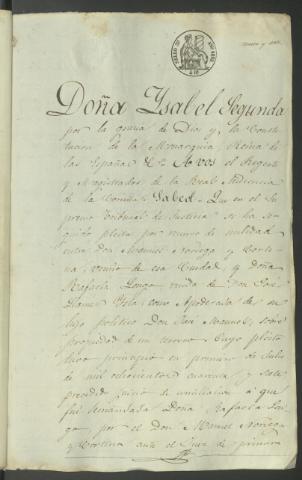 Doña Ysabel Segunda
por la gracia de Dios y la Consti-
tucion de la Monarquia Reina de
las Españas &ª A vos el Regente
y Magistrados de la Real Audiencia
de la Coruña Sabed = Que en el Su
premo Tribunal de Justicia se ha se
guido pleito por recurso de nulidad
entre Don Manuel Noriega y Corti-
na vecino de esa Ciudad, y Doña
Rafaela Longa viuda de Don José
como Apoderada de su
hijo politico Don Juan Manuel, sobre
propiedad de un terreno. Cuyo pleito
tuvo principio en primero de Julio
de mil ochocientos cuarenta y siete
precedido juicio de conciliacion á que
fué demandada Doña Rafaela Lon
ga por el Don Manuel Noriega
y Cortina ante el Juez de primera